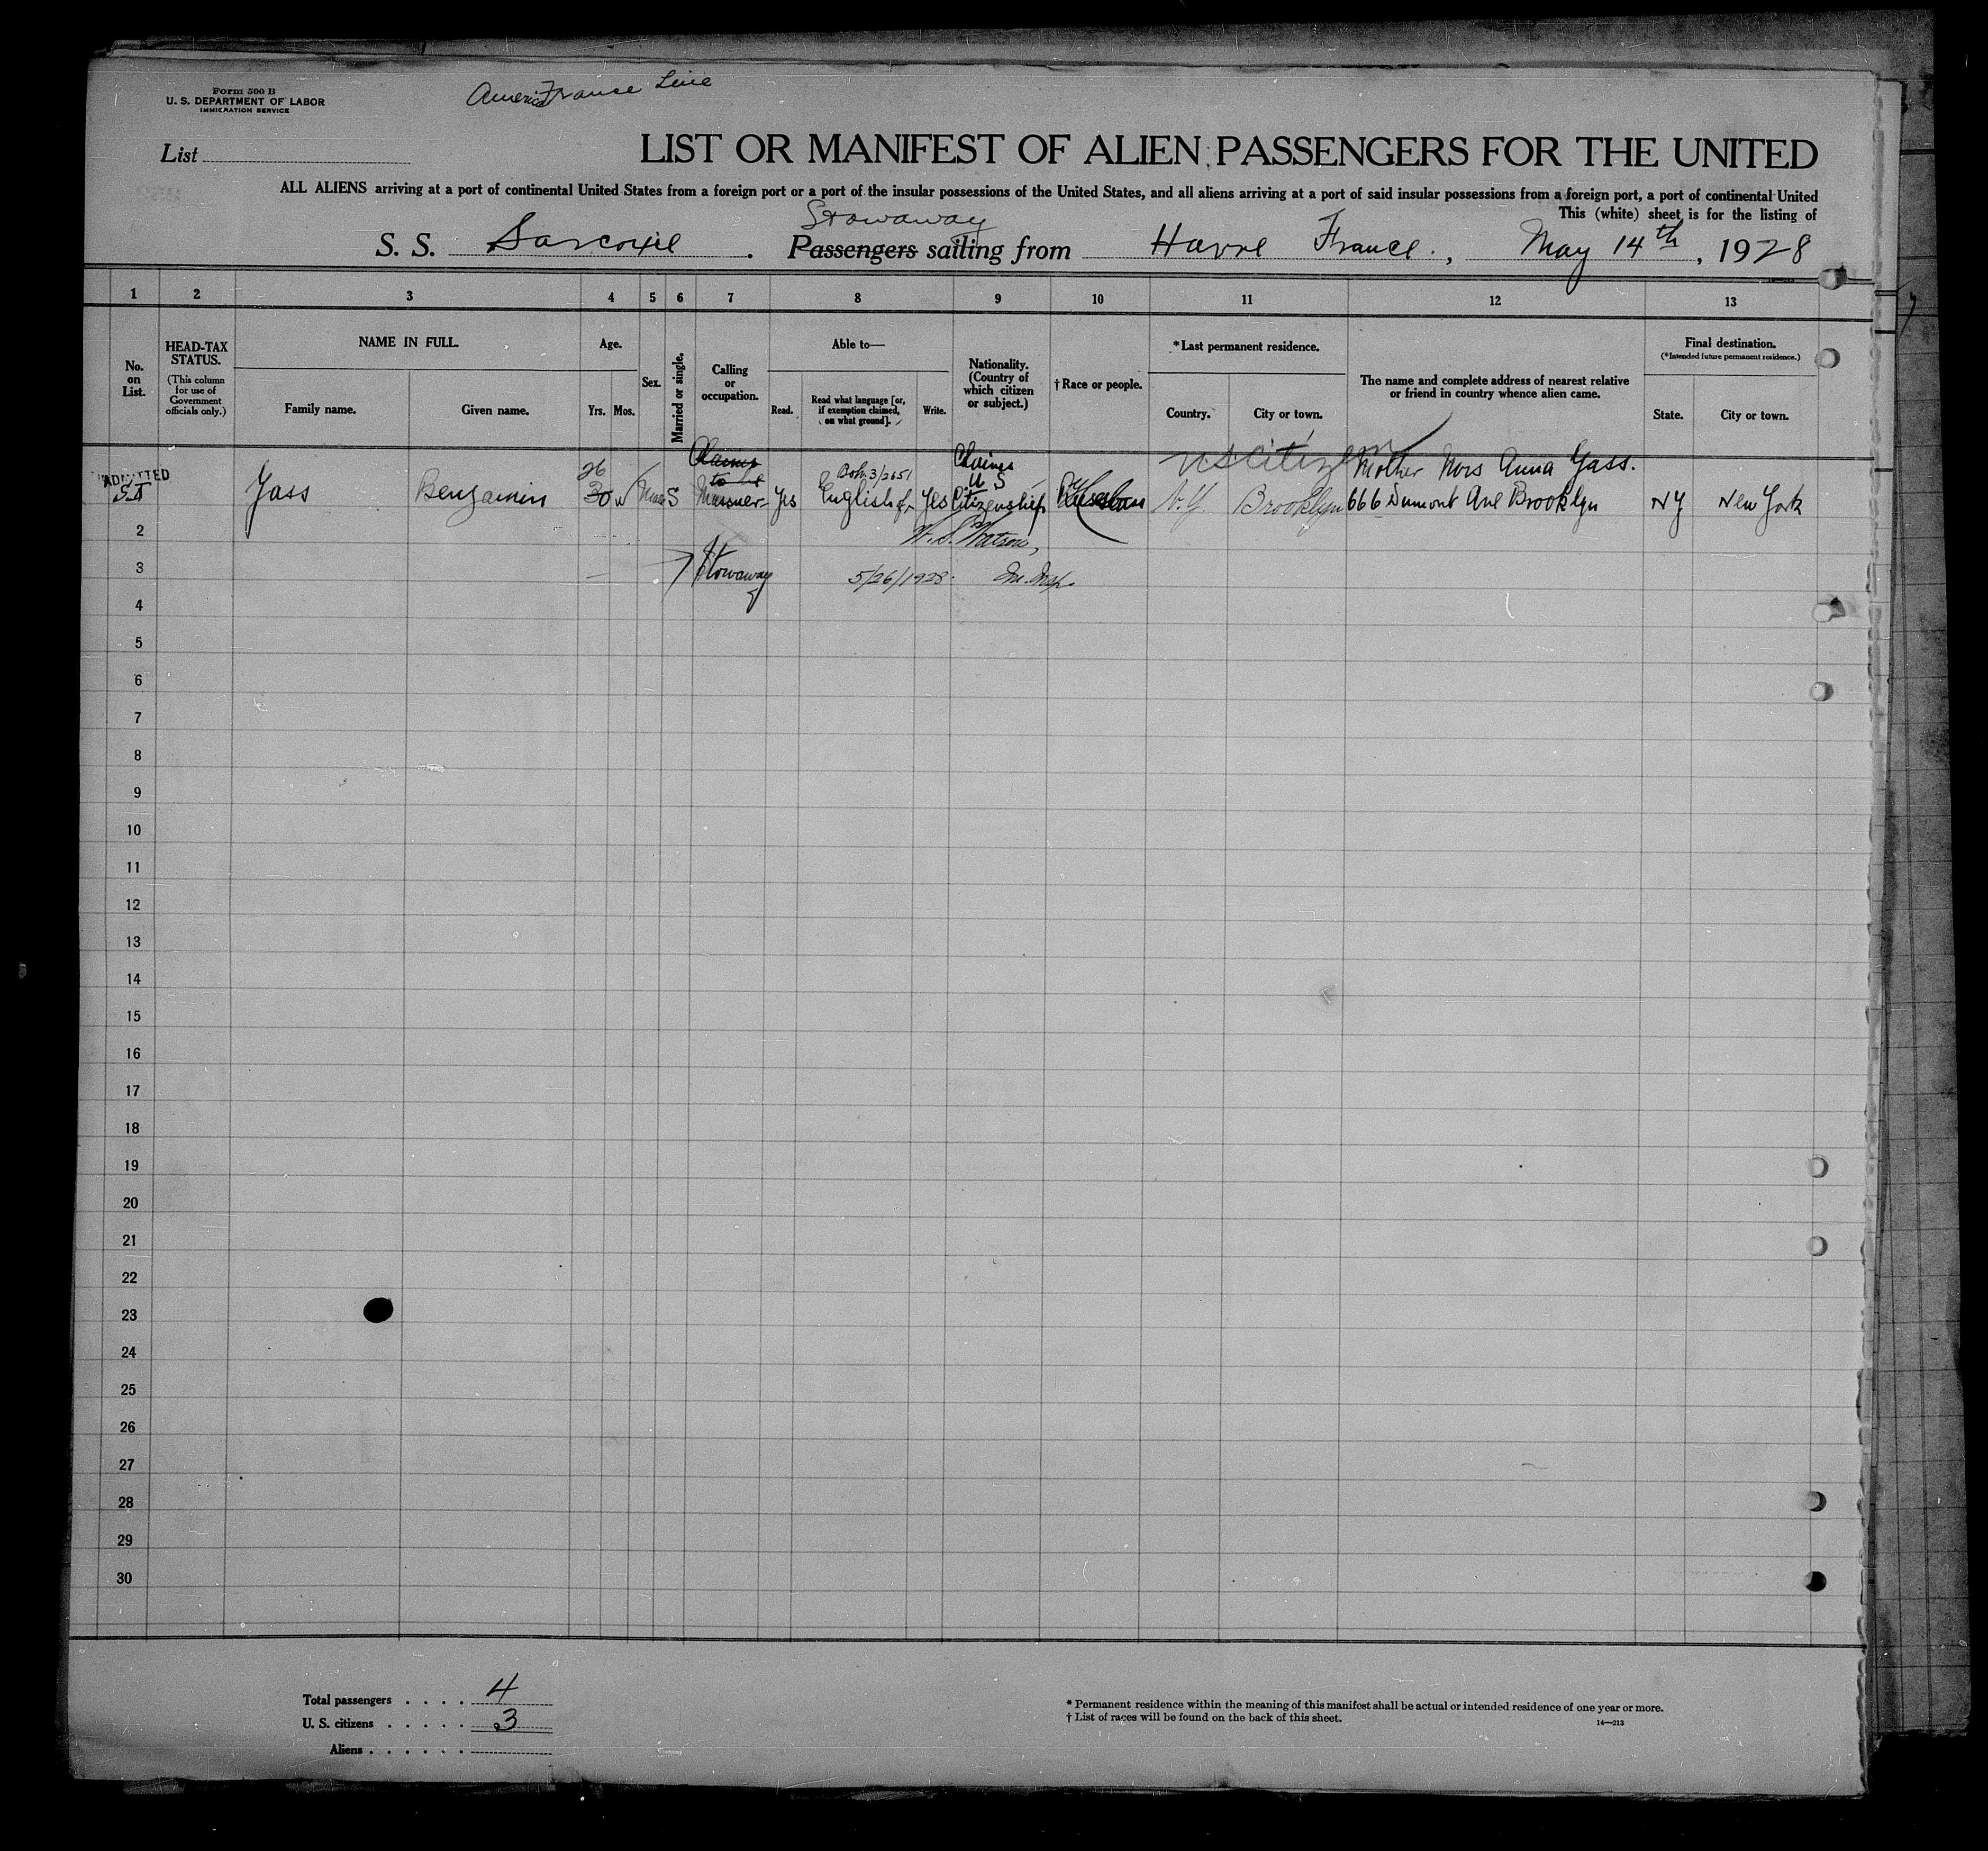 Form 500 B
U. S. DEPARTMENT OF LABOR
IMMIGRATION SERVICE
America France Line
List
LIST OR MANIFEST OF ALIEN PASSENGERS FOR THE UNITED
ALL ALIENS arriving at a port of continental United States from a foreign port or a port of the insular possessions of the United States, and all aliens arriving at a port of said insular possessions from a foreign port, a port of continental United
This (white) sheet is for the listing of
Stowaway
S. S. Sarcoxie . Passengers sailing from Havre France. , May 14th , 1928
1 2 3 4 5 6 7 8 9 10 11 12 13
No. on List.
HEAD-TAX STATUS.
(This column for use of Government officials only.)
NAME IN FULL.
Family name.
Given name.
Age.
Yrs. Mos.
Sex.
Married or single.
Calling or occupation.
Able to—
Read.
Read what language [or, if exemption claimed, on what ground].
Write.
Nationality. (Country of which citizen or subject.)
† Race or people.
* Last permanent residence.
Country.
City or town.
The name and complete address of nearest relative or friend in country whence alien came.
Final destination.
(*Intended future permanent residence.)
State.
City or town.
ADMITTED
26
Claims
to be
Claims
U S
US citizen
Mother Mrs Anna Yass.
Yass Benjamin 30 S Yes English Yes Citizenship N.Y. Brooklyn 666 Dumont Ave Brooklyn NY New York
2
W. S. Watson,
3
Stowaway
5/26/1928. Im. Insp.
4
5
6
7
8
9
10
11
12
13
14
15
16
17
18
19
20
21
22
23
24
25
26
27
28
29
30
Total passengers . . . . 4
U. S. citizens . . . . . 3
Aliens . . . . . .
* Permanent residence within the meaning of this manifest shall be actual or intended residence of one year or more.
† List of races will be found on the back of this sheet.
14—213